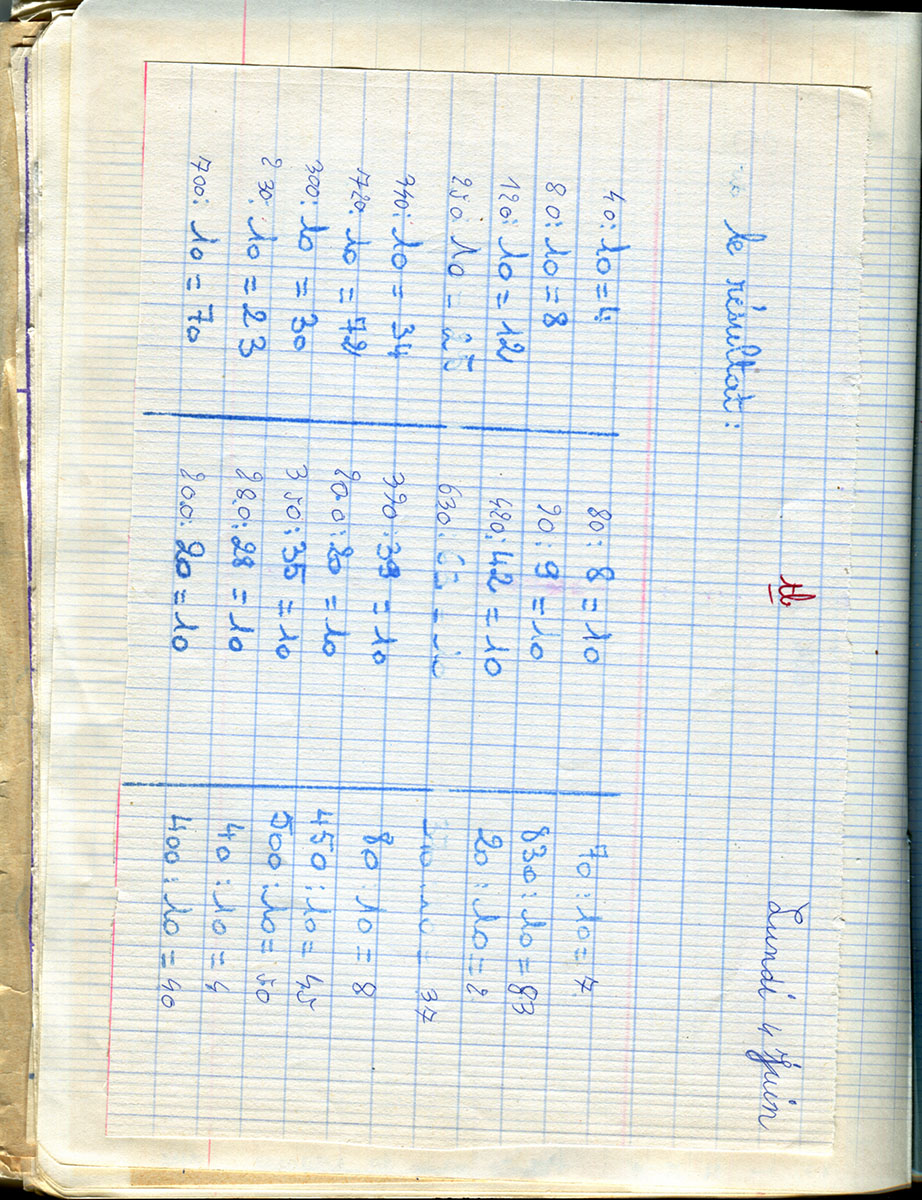 Lundi 4 Juin
tb
le résultat:
40:10=4 80:8=10 70:10=7
80:10=8 90:9=10 830:10=83
120:10=12 420:42=10 20:10=2
250 10 = 25 630: = 37
340:10=34 390:39=10 80:10=8
720:10=72 200:20=10 450:10=45
300:10=30 350:35=10 500:10=50
230:10=23 280:28=10 40:10=4
700:10=70 200:20=10 400:10=40